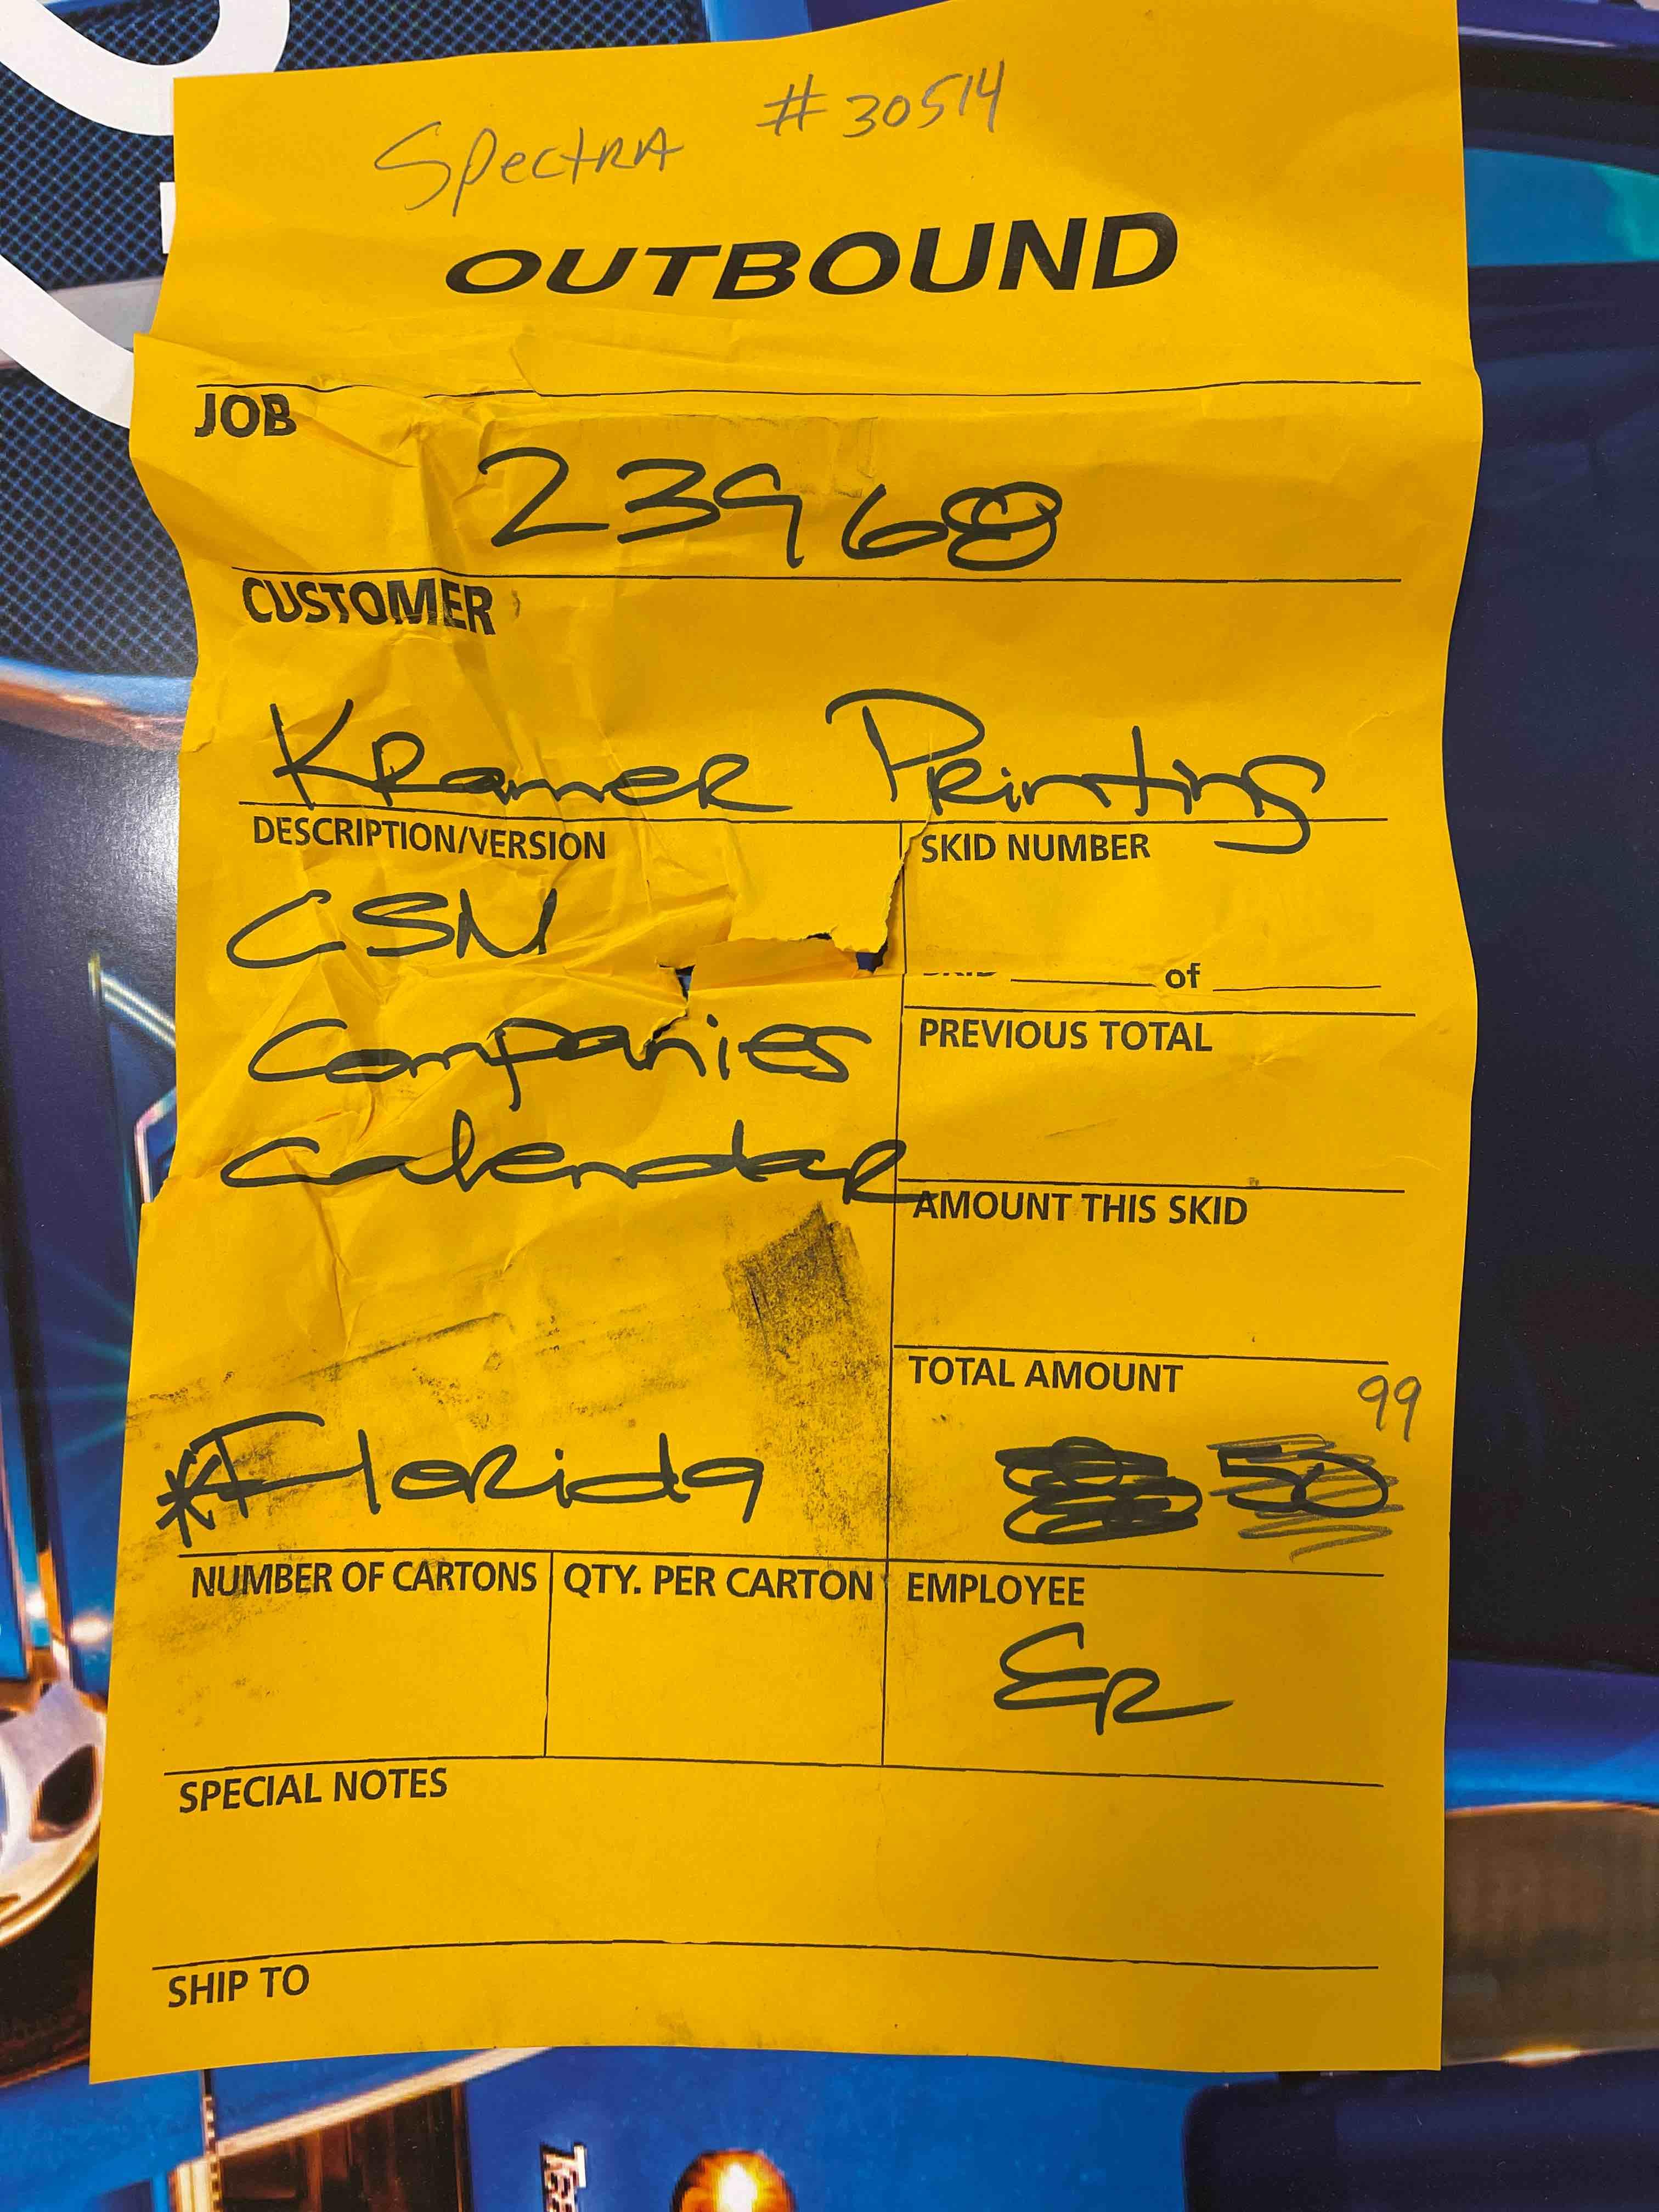 Spectra #30514
OUTBOUND
JOB
23968
CUSTOMER
Kramer Printing
DESCRIPTION/VERSION
CSN
Companies
Calendar
*Florida
SKID NUMBER
SKID ______ of ______
PREVIOUS TOTAL
AMOUNT THIS SKID
TOTAL AMOUNT
99
50
NUMBER OF CARTONS
QTY. PER CARTON
EMPLOYEE
ER
SPECIAL NOTES
SHIP TO